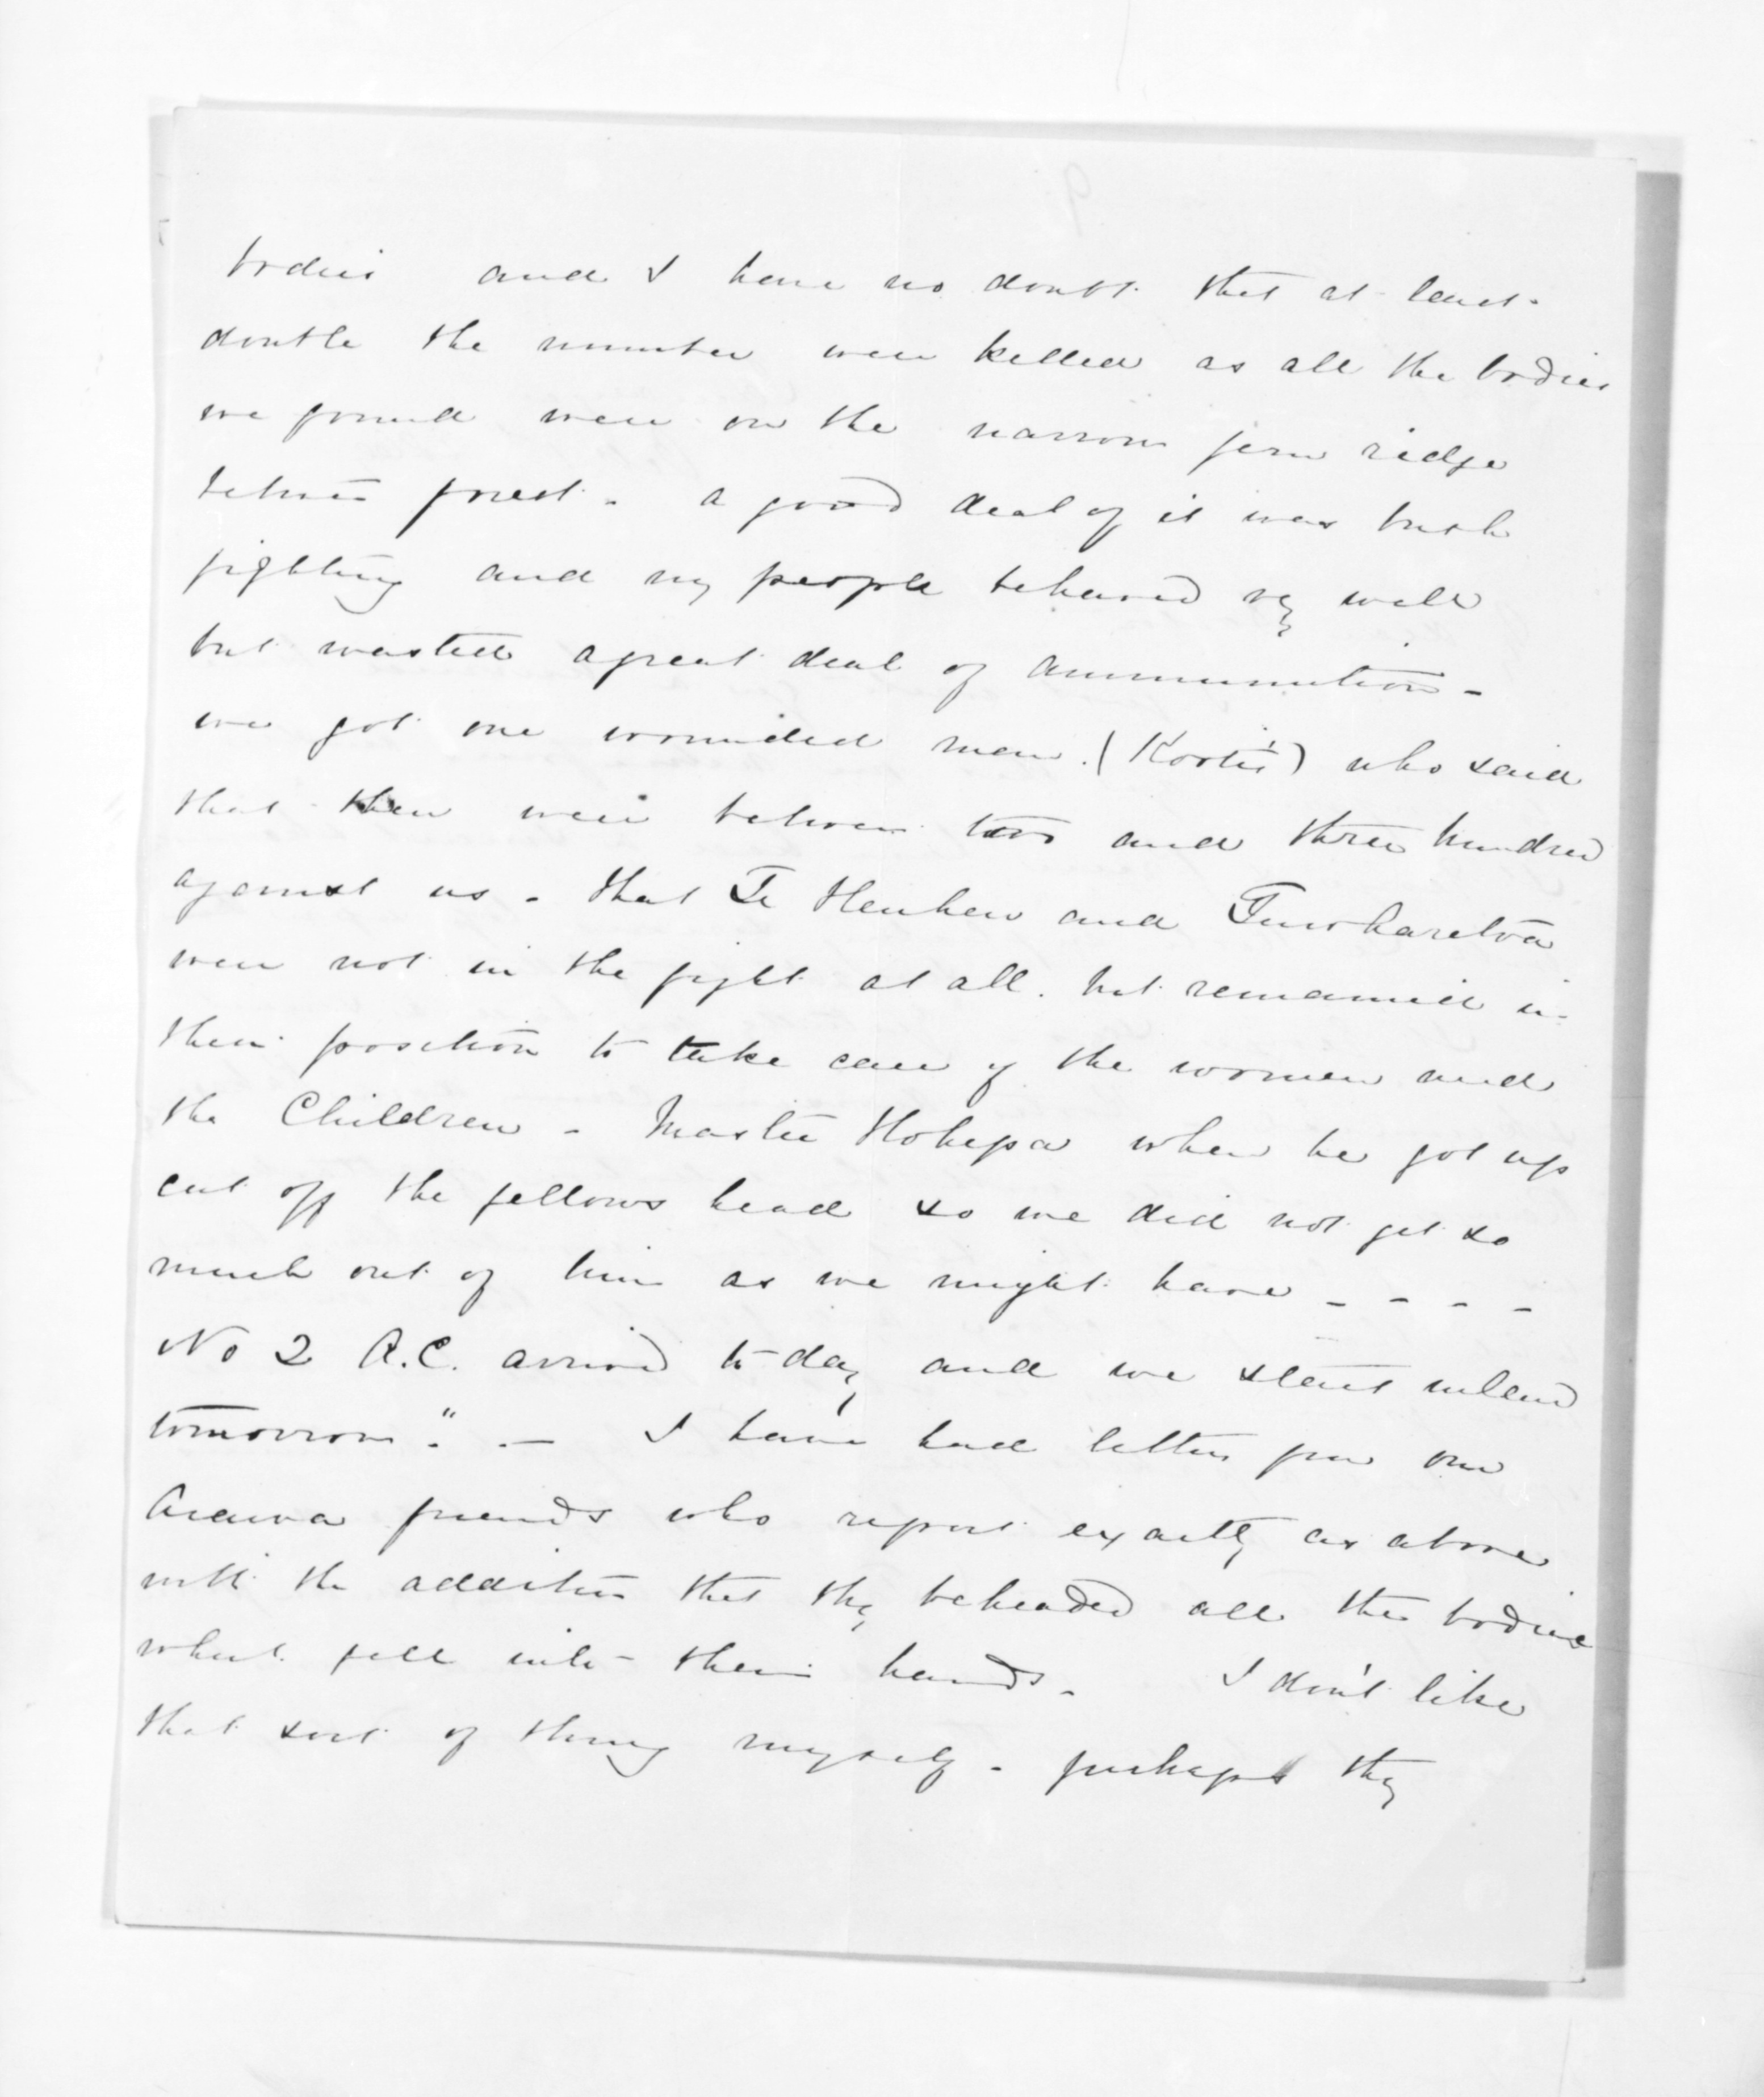 bodies and I have no doubt that at least
double the number were killed as all the bodies
we found were on the narrow fern ridge
between forest - a good deal of it was bush
fighting and my people behaved vy well
but wasted a great deal of ammunition -
we got one wounded man. ( ) who said
that there were between two and three hundred
against us - that Te Heuheu and
were not in the fight at all. but remained in
their position to take care of the women and
the Children - Master Hohepa when he got up
cut off the fellows head so we did not get so
much out of him as we might have - - - -
No 2 A.C. arrived to-day and we start inland
tomorrow". - I have had letters from our
Arawa friends who report exactly as above
with the addition that they beheaded all the bodies
which fell into their hands - I don't like
that sort of thing myself - perhaps they